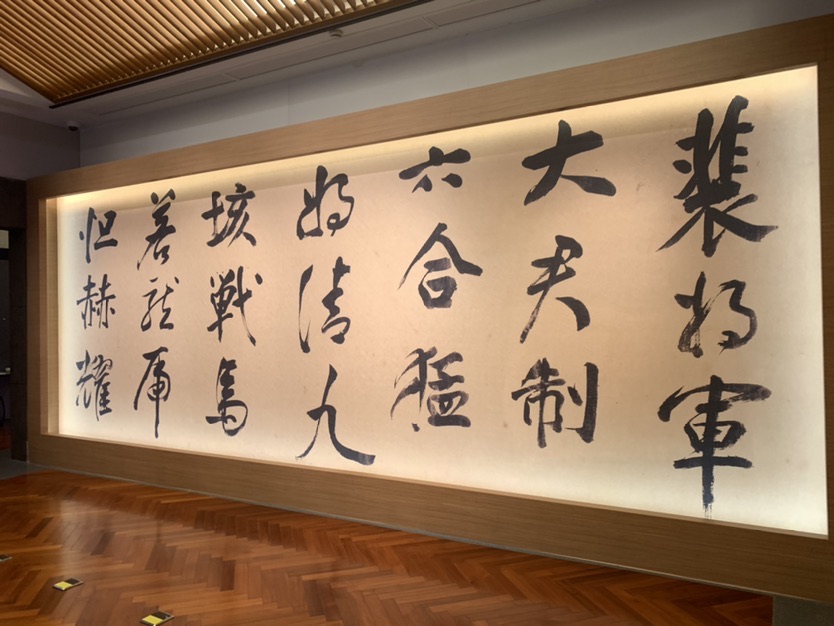 裴將軍
大君制
六合猛
將清九
垓戰馬
若龍虎
烜赫耀